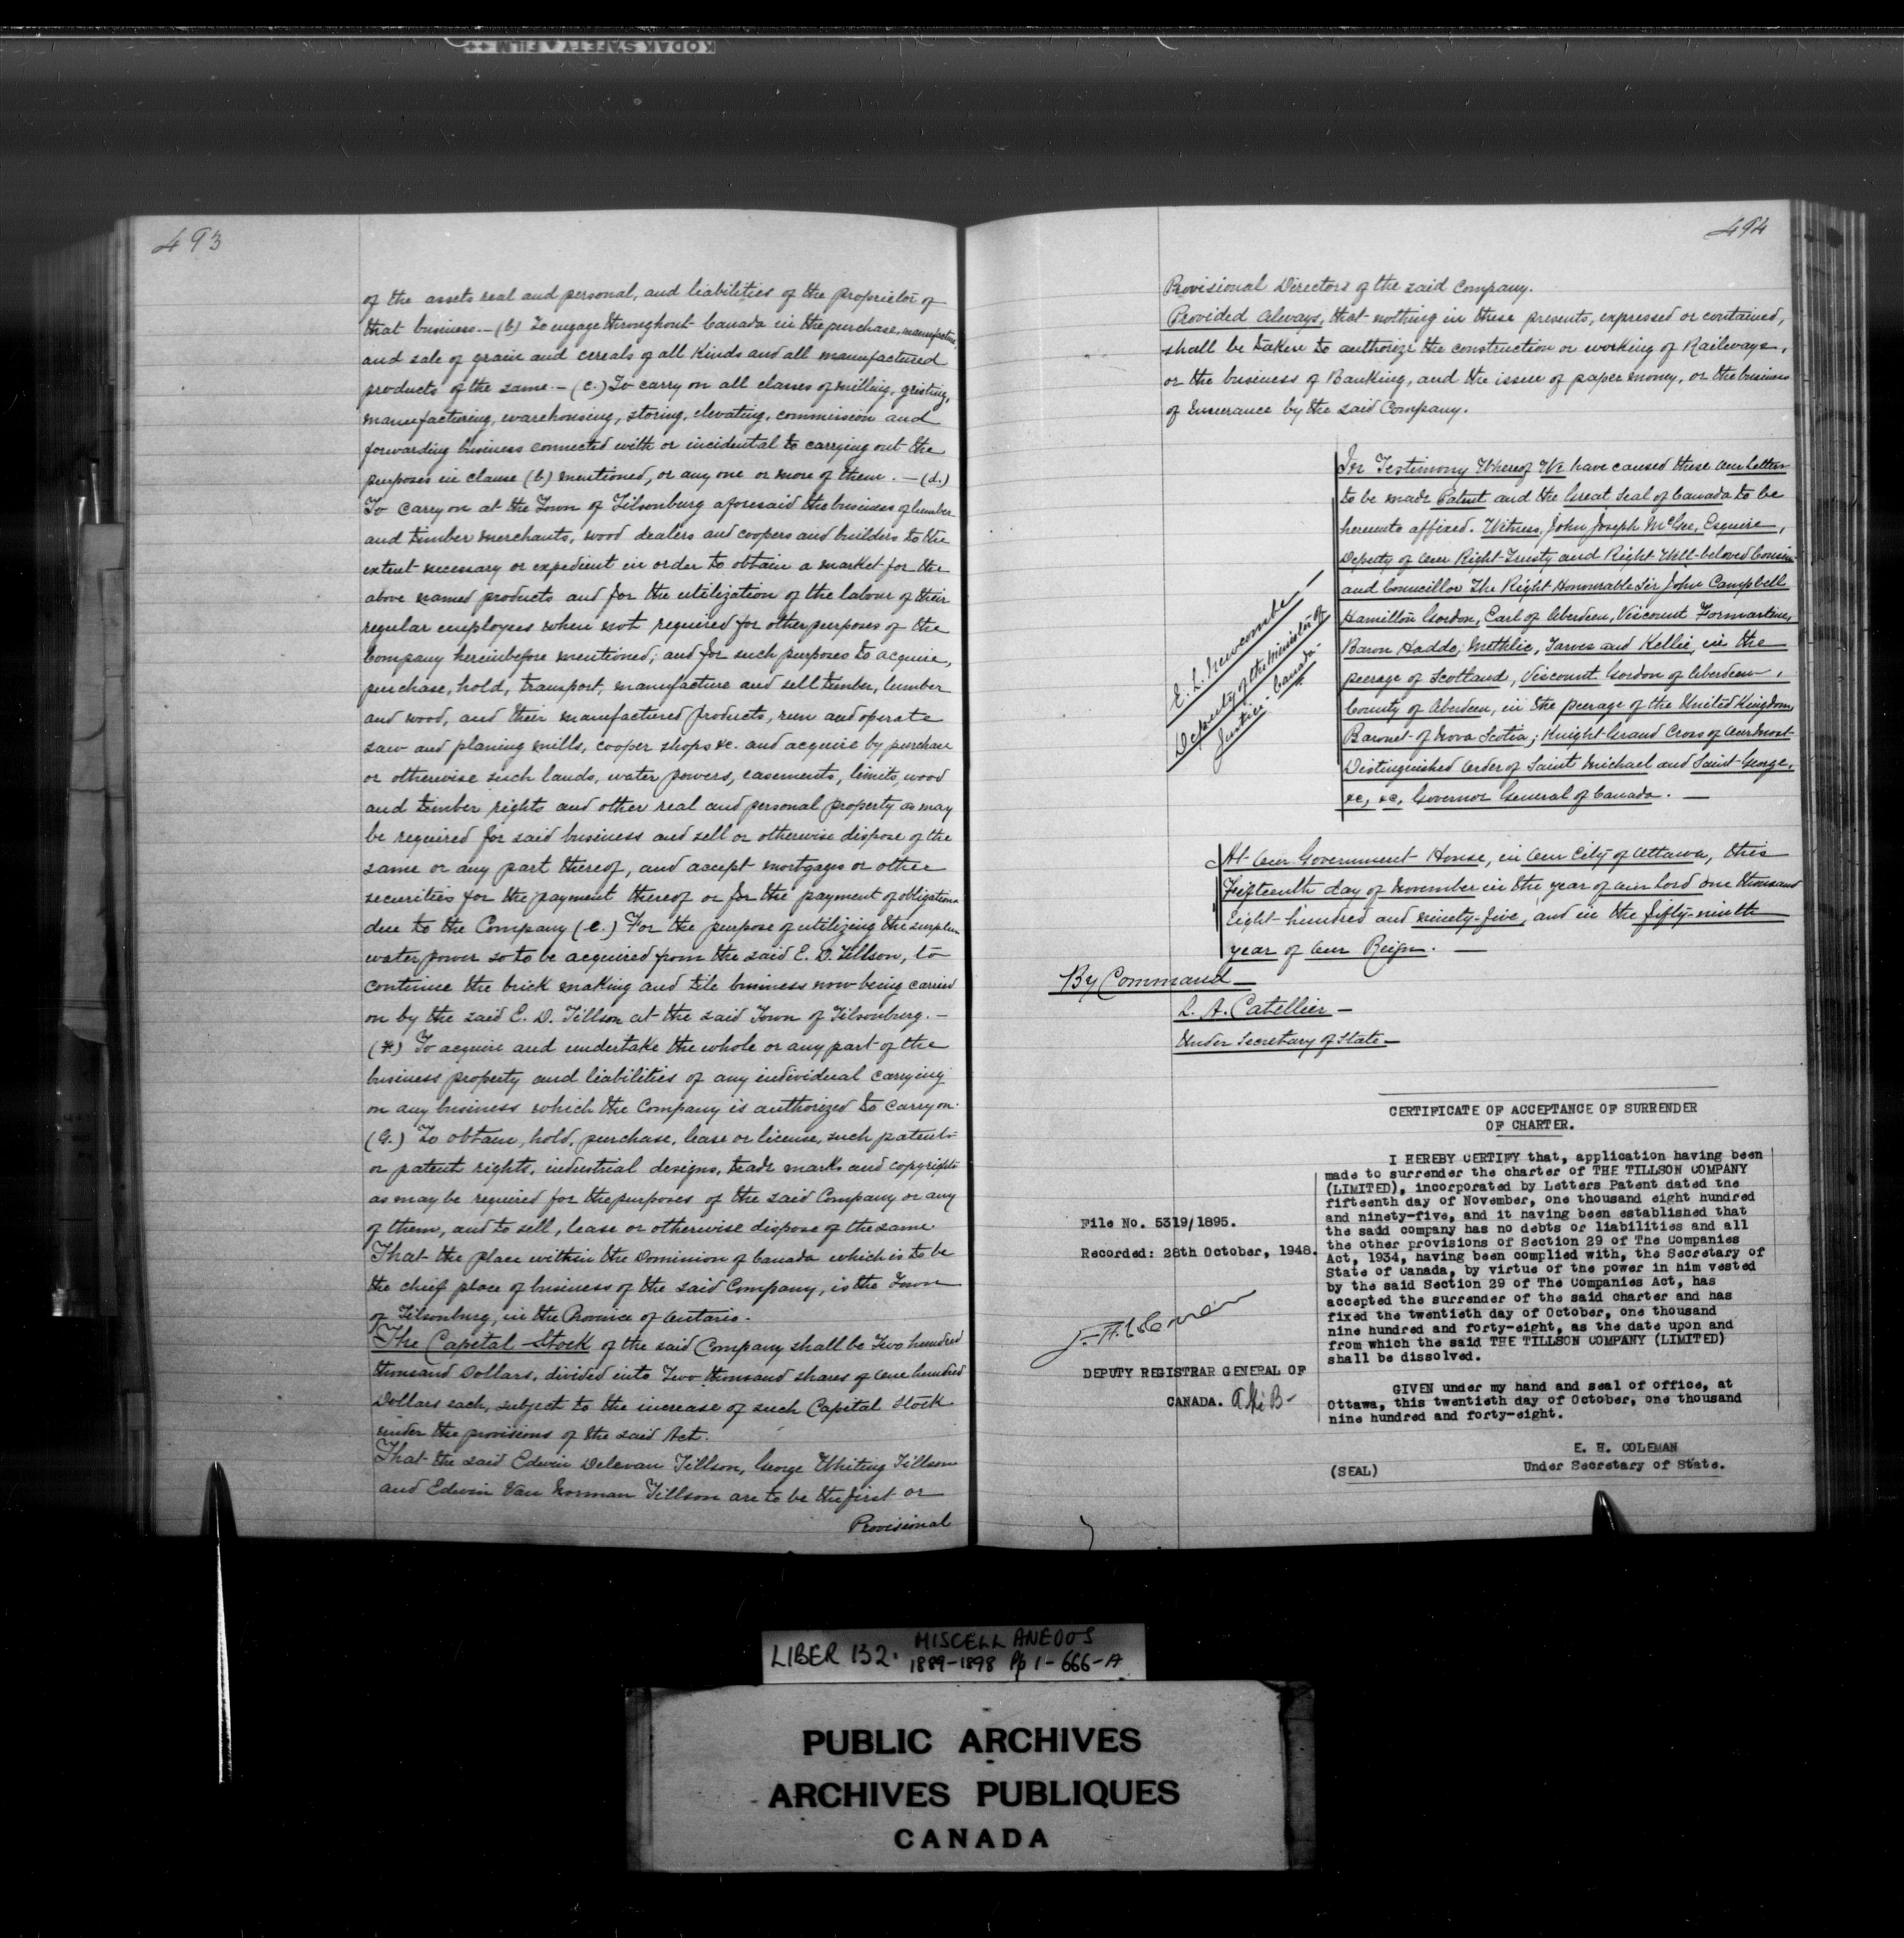 KODAK SAFETY FILM ++
493
of the assets real and personal, and liabilities of the proprietor of
that business. — (b) To engage throughout Canada in the purchase, manufacture,
and sale of grain and cereals of all Kinds and all manufactured
products of the same. — (c.) To carry on all classes of milling, gristing,
manufacturing, warehousing, storing, elevating, commission and
forwarding business connected with or incidental to carrying out the
purposes in clause (b) mentioned, or any one or more of them. — (d.)
To carry on at the Town of Tilsonburg aforesaid the business of lumber
and timber merchants, wood dealers and coopers and builders to the
extent necessary or expedient in order to obtain a market for the
above named products and for the utilization of the labour of their
regular employees when not required for other purposes of the
Company hereinbefore mentioned; and for such purposes to acquire,
purchase, hold, transport, manufacture and sell timber, lumber
and wood, and their manufactured products, run and operate
saw and planing mills, cooper shops &c. and acquire by purchase
or otherwise such lands, water powers, easements, limits, wood
and timber rights and other real and personal property as may
be required for said business and sell or otherwise dispose of the
same or any part thereof, and accept mortgages or other
securities for the payment thereof or for the payment of obligations
due to the Company (e.) For the purpose of utilizing the surplus
water power so to be acquired from the said E. D. Tillson, to
continue the brick making and tile business now being carried
on by the said E. D. Tillson at the said Town of Tilsonburg. —
(f.) To acquire and undertake the whole or any part of the
business property and liabilities of any individual carrying
on any business which the Company is authorized to carry on.
(G.) To obtain, hold, purchase, lease or license, such patents
or patent rights, industrial designs, trade marks and copyrights
as may be required for the purposes of the said Company or any
of them, and to sell, lease or otherwise dispose of the same
That the place within the Dominion of Canada which is to be
the chief place of business of the said Company, is the Town
of Tilsonburg, in the Province of Ontario.
The Capital Stock of the said Company shall be Two hundred
thousand Dollars, divided into Two thousand shares of One hundred
Dollars each, subject to the increase of such Capital Stock
under the provisions of the said Act.
That the said Edwin Delevan Tillson, George Whiting Tillson
and Edwin Van Norman Tillson are to be the first or
Provisional
494
Provisional Directors of the said Company.
Provided Always, that nothing in these presents, expressed or contained,
shall be taken to authorize the construction or working of Railways,
or the business of Banking, and the issue of paper money, or the business
of Insurance by the said Company.
In Testimony Whereof We have caused these Our Letters
to be made Patent and the Great Seal of Canada to be
hereunto affixed. Witness, John Joseph McGee, Esquire,
Deputy of Our Right Trusty and Right Well-beloved Cousin
and Councillor The Right Honourable Sir John Campbell
Hamilton Gordon, Earl of Aberdeen, Viscount Formartine,
Baron Haddo, Methlic, Tarves and Kellie, in the
peerage of Scotland, Viscount Gordon of Aberdeen,
County of Aberdeen, in the peerage of the United Kingdom,
Baronet of Nova Scotia; Knight Grand Cross of Our Most
Distinguished Order of Saint Michael and Saint George,
&c, &c, Governor General of Canada. —
E. L. Newcombe —
Deputy of the Minister of
Justice Canada.
At Our Government House, in Our City of Ottawa, this
Fifteenth day of November in the year of Our Lord One thousand
Eight hundred and ninety-five, and in the fifty-ninth
year of Our Reign. —
By Command —
L. A. Catellier —
Under Secretary of State —
CERTIFICATE OF ACCEPTANCE OF SURRENDER
OF CHARTER.
I HEREBY CERTIFY that, application having been
made to surrender the charter of THE TILLSON COMPANY
(LIMITED), incorporated by Letters Patent dated the
fifteenth day of November, one thousand eight hundred
and ninety-five, and it having been established that
the said company has no debts or liabilities and all
the other provisions of Section 29 of The Companies
Act, 1934, having been complied with, the Secretary of
State of Canada, by virtue of the power in him vested
by the said Section 29 of The Companies Act, has
accepted the surrender of the said charter and has
fixed the twentieth day of October, one thousand
nine hundred and forty-eight, as the date upon and
from which the said THE TILLSON COMPANY (LIMITED)
shall be dissolved.
GIVEN under my hand and seal of office, at
Ottawa, this twentieth day of October, one thousand
nine hundred and forty-eight.
E. H. COLEMAN
Under Secretary of State.
(SEAL)
File No. 5319/1895.
Recorded: 28th October, 1948.
DEPUTY REGISTRAR GENERAL OF
CANADA.
LIBER 132. MISCELLANEOUS
1889-1898 Pp 1-666-A
PUBLIC ARCHIVES
ARCHIVES PUBLIQUES
CANADA